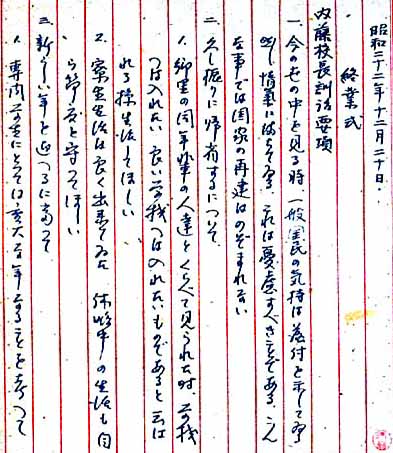 昭和二十二年十二月二十日.
終業式
内藤校長訓話要項
一、今の世の中を見る時 一般国民の気持は落付を示して
惰気にみちてゐる. これは憂慮すべきことである. こん
な事では国家の再建はのぞまれない
二、久し振りに帰省するについて
1. 郷里の同年輩の人達とくらべて見られた時、二高
は入れない 良い学校 は入れたいものであると云は
れる様生活してほしい
2. 寮生生活は良く出来てゐた 休暇中の生活も自
ら節度を守ってほしい
三、新しい年を迎へるに当って
1. 専内 にとっては重大な年であることを